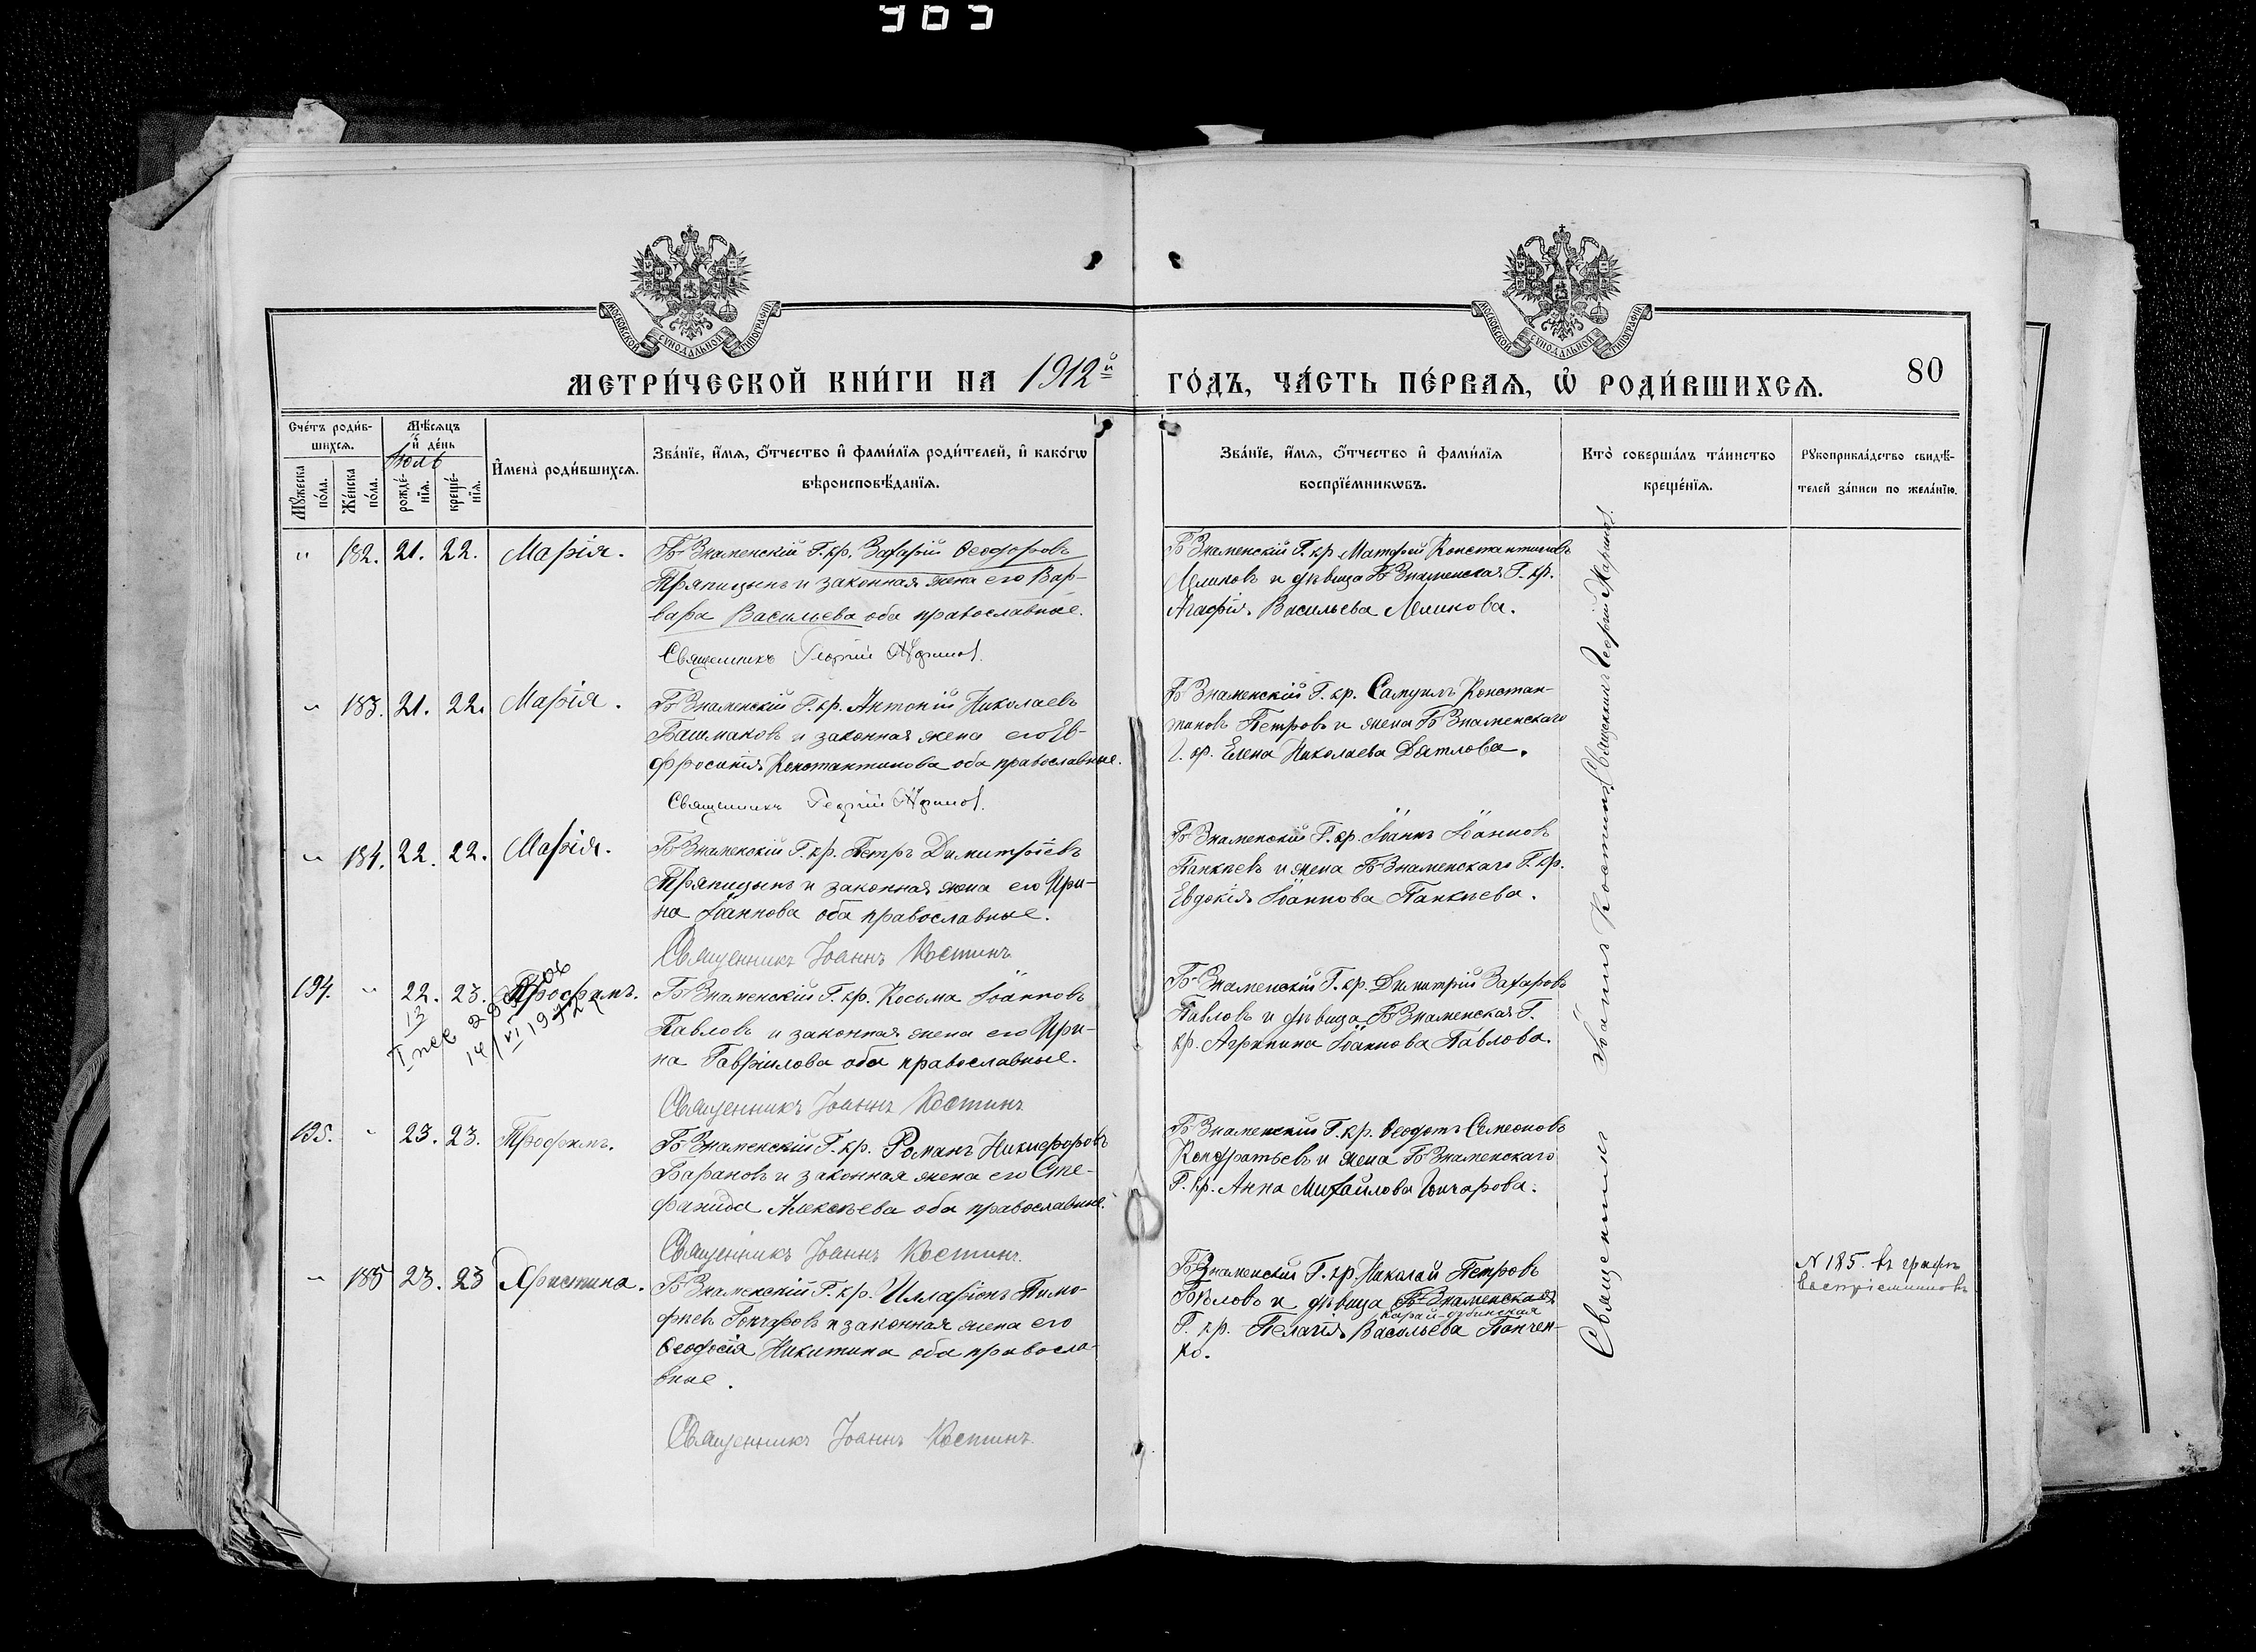 МОСКОВСКОЙ СѴНОДАЛЬНОЙ ТИПОГРАФІИ
МОСКОВСКОЙ СѴНОДАЛЬНОЙ ТИПОГРАФІИ
МЕТРИ́ЧЕСКОЙ КНИ́ГИ НА 1912й ГО́ДЪ, ЧА́СТЬ ПЕ́РВАѦ, Ѽ РОДИ́ВШИХСѦ.
80
Сче́тъ роди́в-
шихсѧ.
Мꙋ́жеска по́ла.
Же́нска по́ла.
Мѣ́сѧцъ
и҆ де́нь
Юль
рожде́-
нїѧ.
креще́-
нїѧ.
И҆мена̀ роди́вшихсѧ.
Зва́нїе, и҆́мѧ, ѻ҆́тчество и҆ фами́лїѧ роди́телей, и҆ како́гѡ
вѣроисповѣ́данїѧ.
Зва́нїе, и҆́мѧ, ѻ҆́тчество и҆ фами́лїѧ
воспрїе́мникѡвъ.
Кто̀ соверша́лъ та́инство
креще́нїѧ.
Рꙋкоприкла́дство свидѣ́-
телей за́писи по жела́нїю.
" 182. 21. 22. Марія.
Б-Знаменскій Г. кр. Захарій Ѳеодоровъ
Тряпицынъ и законная жена его Вар-
вара Васильева оба православные.
Священникъ Георгій
Б Знаменскій Г. кр Матфей Константиновъ
и дѣвица Б-Знаменская Г. кр.
Агафія Васильева
" 183. 21. 22. Марія.
Б Знаменскій Г. кр. Антоній Николаевъ
Башмаковъ и законная жена его Ев-
фросинія Константинова оба православные.
Священникъ Георгій
Б Знаменскій Г. кр. Самуилъ Констан-
тиновъ Петровъ и жена Б Знаменскаго
Г. кр. Елена Николаева Дятлова.
" 184. 22. 22. Марія.
Б Знаменскій Г. кр. Петръ Димитріевъ
Тряпицынъ и законная жена его Ири-
на Іоаннова оба православные.
Священникъ Іоаннъ Костинъ
Б Знаменскій Г. кр. Іоаннъ Іоанновъ
и жена Б Знаменскаго Г. кр.
Евдокія Іоаннова
194. " 22. 23. Трофимъ.
Б Знаменскій Г. кр. Косьма Іоанновъ
Павловъ и законная жена его Ири-
на Гавріилова оба православные.
Священникъ Іоаннъ Костинъ
Б-Знаменскій Г. кр. Димитрій Захаровъ
Павловъ и дѣвица Б Знаменская Г.
кр. Агрипина Іоаннова Павлова.
195. " 23. 23. Трофимъ.
Б Знаменскій Г. кр. Романъ Никифоровъ
Барановъ и законная жена его Сте-
фанида Алексѣева оба православные.
Священникъ Іоаннъ Костинъ.
Б Знаменскій Г. кр. Ѳеодотъ Семеоновъ
Кондратьевъ и жена Б Знаменскаго
Г. кр. Анна Михайлова Гончарова.
" 185 23. 23 Христина.
Б Знаменскій Г. кр. Илларіонъ Тимо-
фѣевъ Гончаровъ и законная жена его
Ѳеодосія Никитина оба правосла-
вные.
Священникъ Іоаннъ Костинъ.
Б Знаменскій Г. кр. Николай Петровъ
Бѣловъ и дѣвица Б-Знаменская
Карай-дубинская
Г. кр. Пелагія Васильева Панчен-
ко.
Священники Іоаннъ Костинъ, Священникъ Георгій
N 185. въ графѣ
воспріемниковъ